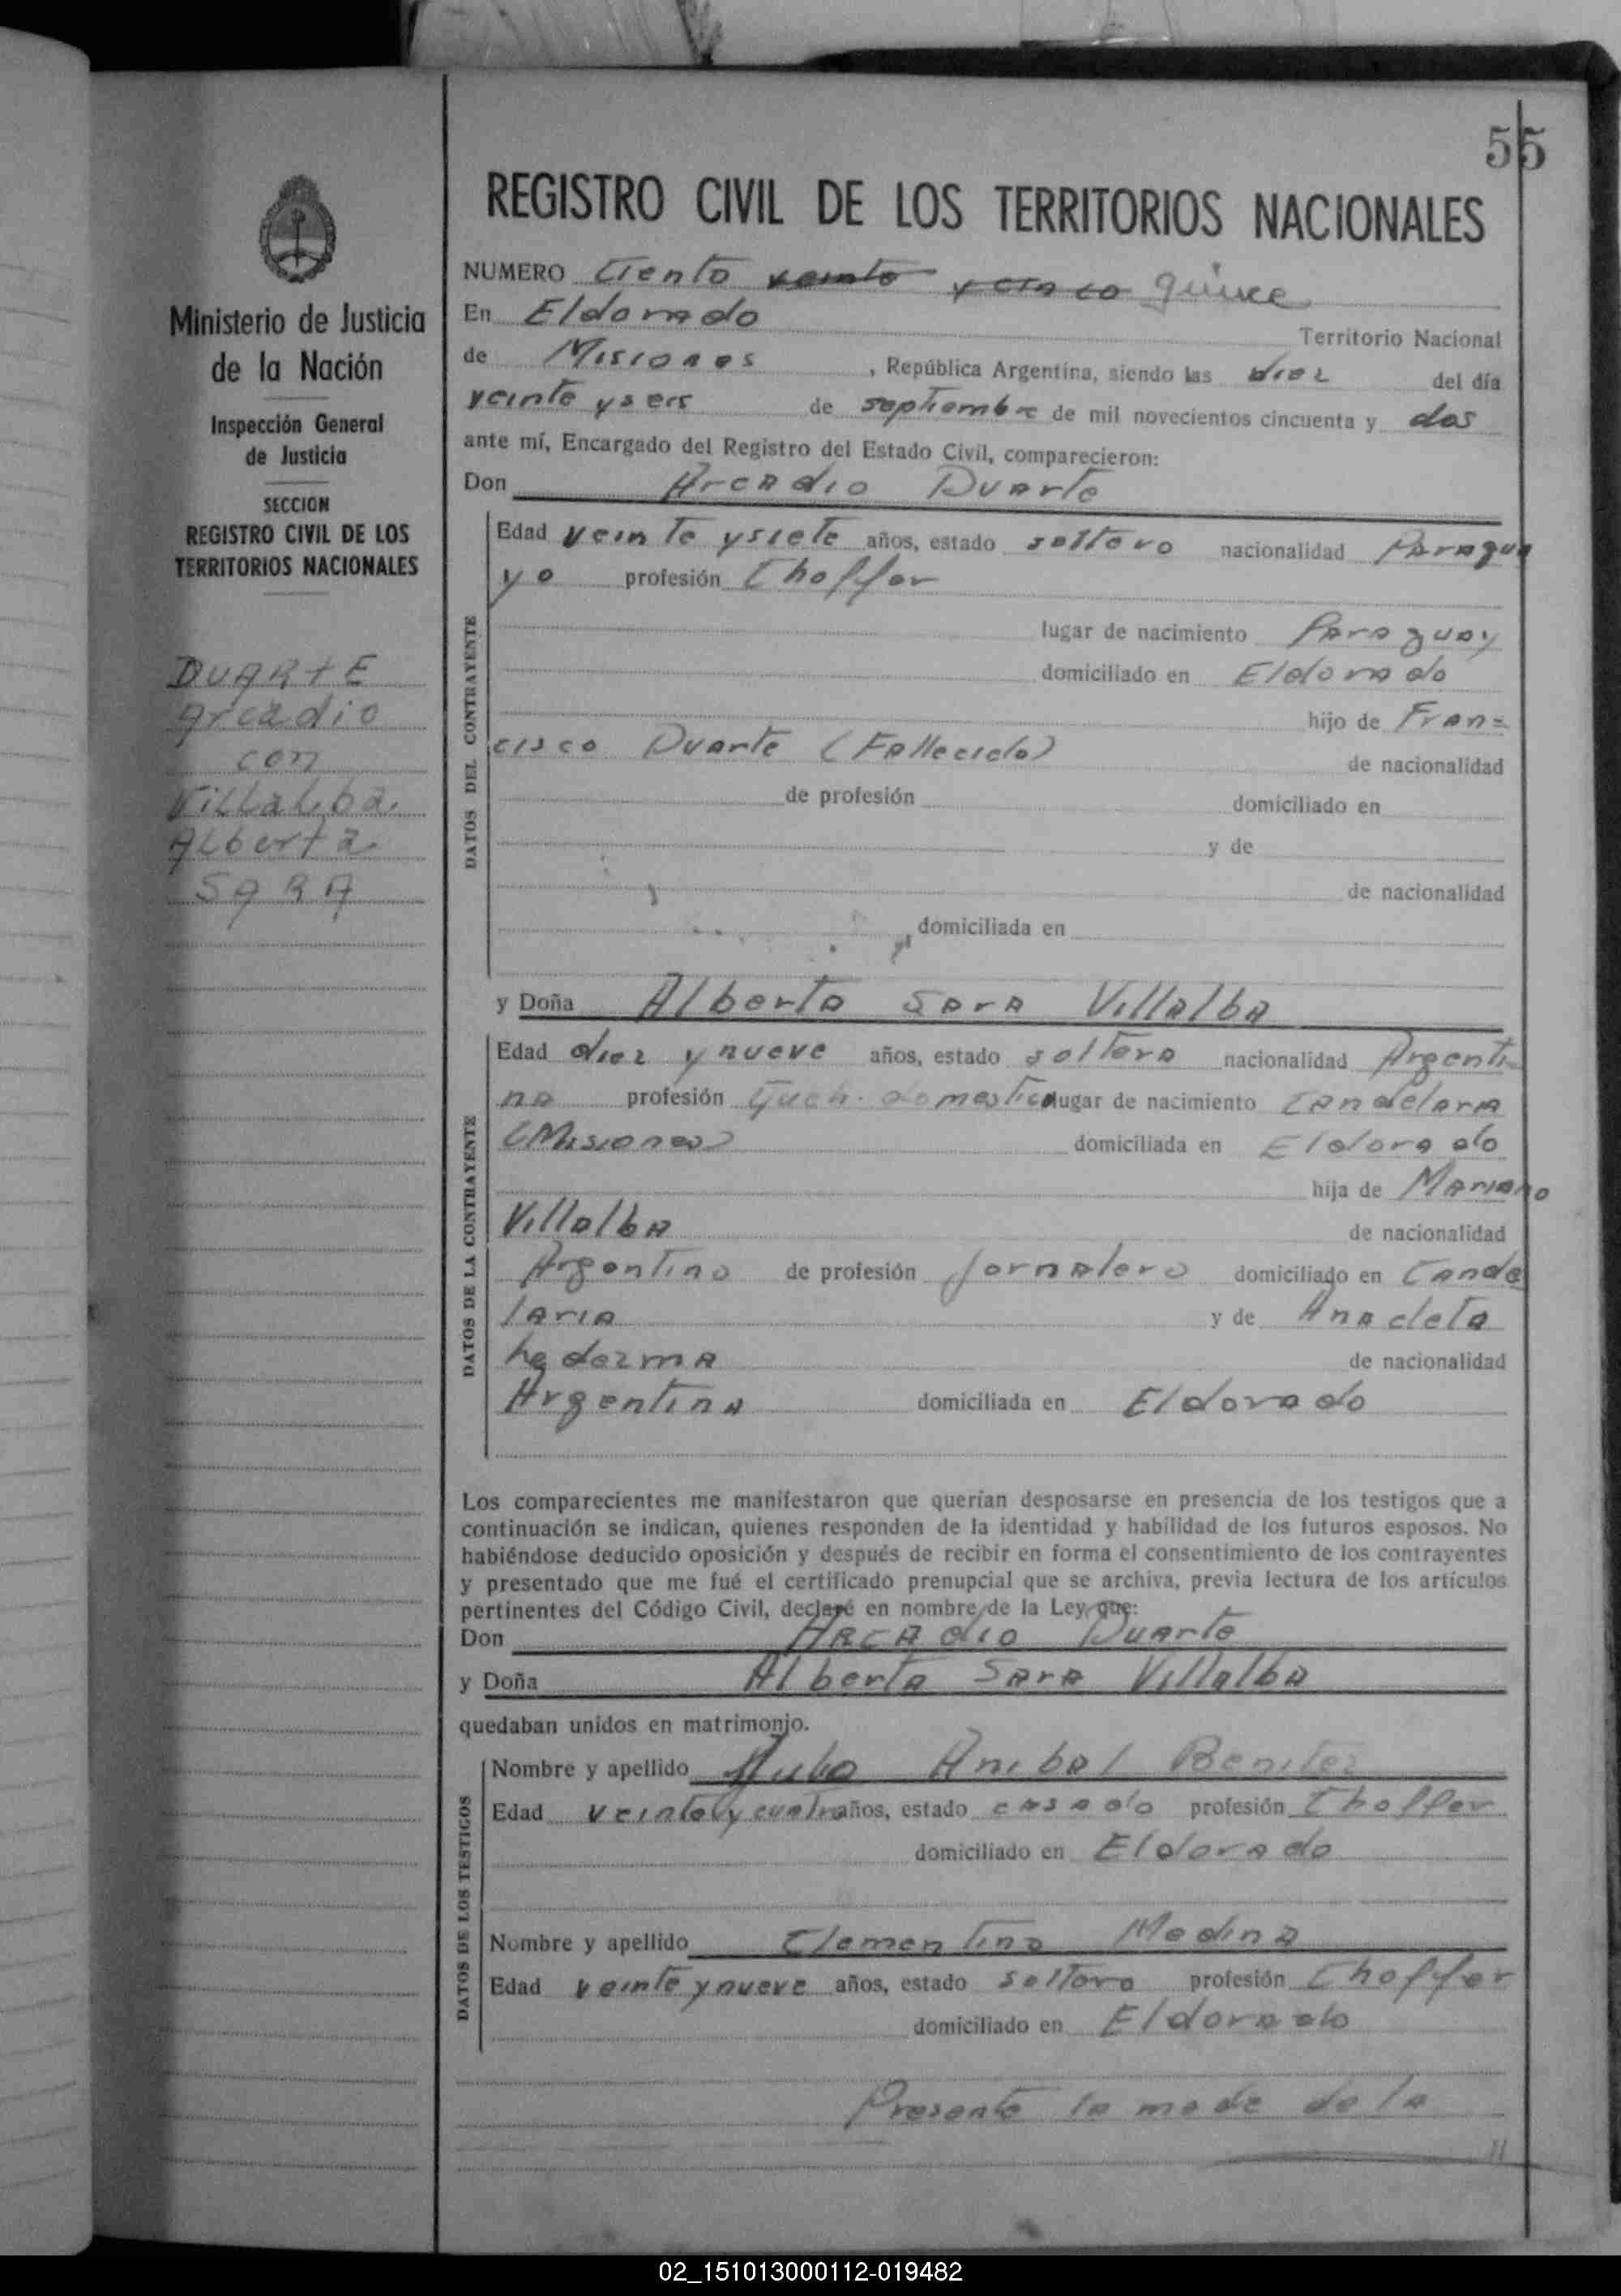 55
REGISTRO CIVIL DE LOS TERRITORIOS NACIONALES
Ministerio de Justicia
de la Nación
Inspección General
de Justicia
SECCION
REGISTRO CIVIL DE LOS
TERRITORIOS NACIONALES
DUARTE
Arcadio
con
Villalba
Alberta
SARA
NUMERO Ciento veinte y cinco quince
En Eldorado Territorio Nacional
de Misiones , República Argentina, siendo las diez del día
veinte y seis de septiembre de mil novecientos cincuenta y dos
ante mí, Encargado del Registro del Estado Civil, comparecieron:
Don Arcadio Duarte
DATOS DEL CONTRAYENTE
Edad veinte y siete años, estado soltero nacionalidad Paragua
yo profesión Choffer
lugar de nacimiento Paraguay
domiciliado en Eldorado
hijo de Fran=
cisco Duarte (Fallecido) de nacionalidad
de profesión domiciliado en
y de
de nacionalidad
domiciliada en
y Doña Alberta Sara Villalba
DATOS DE LA CONTRAYENTE
Edad diez y nueve años, estado soltera nacionalidad Argenti-
na profesión Queh. domestico lugar de nacimiento Candelaria
(Misiones) domiciliada en Eldorado
hija de Mariano
Villalba de nacionalidad
Argentino de profesión Jornalero domiciliado en Cande
laria y de Anacleta
Ledezma de nacionalidad
Argentina domiciliada en Eldorado
Los comparecientes me manifestaron que querían desposarse en presencia de los testigos que a
continuación se indican, quienes responden de la identidad y habilidad de los futuros esposos. No
habiéndose deducido oposición y después de recibir en forma el consentimiento de los contrayentes
y presentado que me fué el certificado prenupcial que se archiva, previa lectura de los artículos
pertinentes del Código Civil, declaré en nombre de la Ley que:
Don Arcadio Duarte
y Doña Alberta Sara Villalba
quedaban unidos en matrimonio.
DATOS DE LOS TESTIGOS
Nombre y apellido Anibal Benitez
Edad veinte y cuatro años, estado casado profesión Choffer
domiciliado en Eldorado
Nombre y apellido Clementino Medina
Edad veinte y nueve años, estado soltero profesión Choffer
domiciliado en Eldorado
Presente la made de la
//
02_151013000112-019482